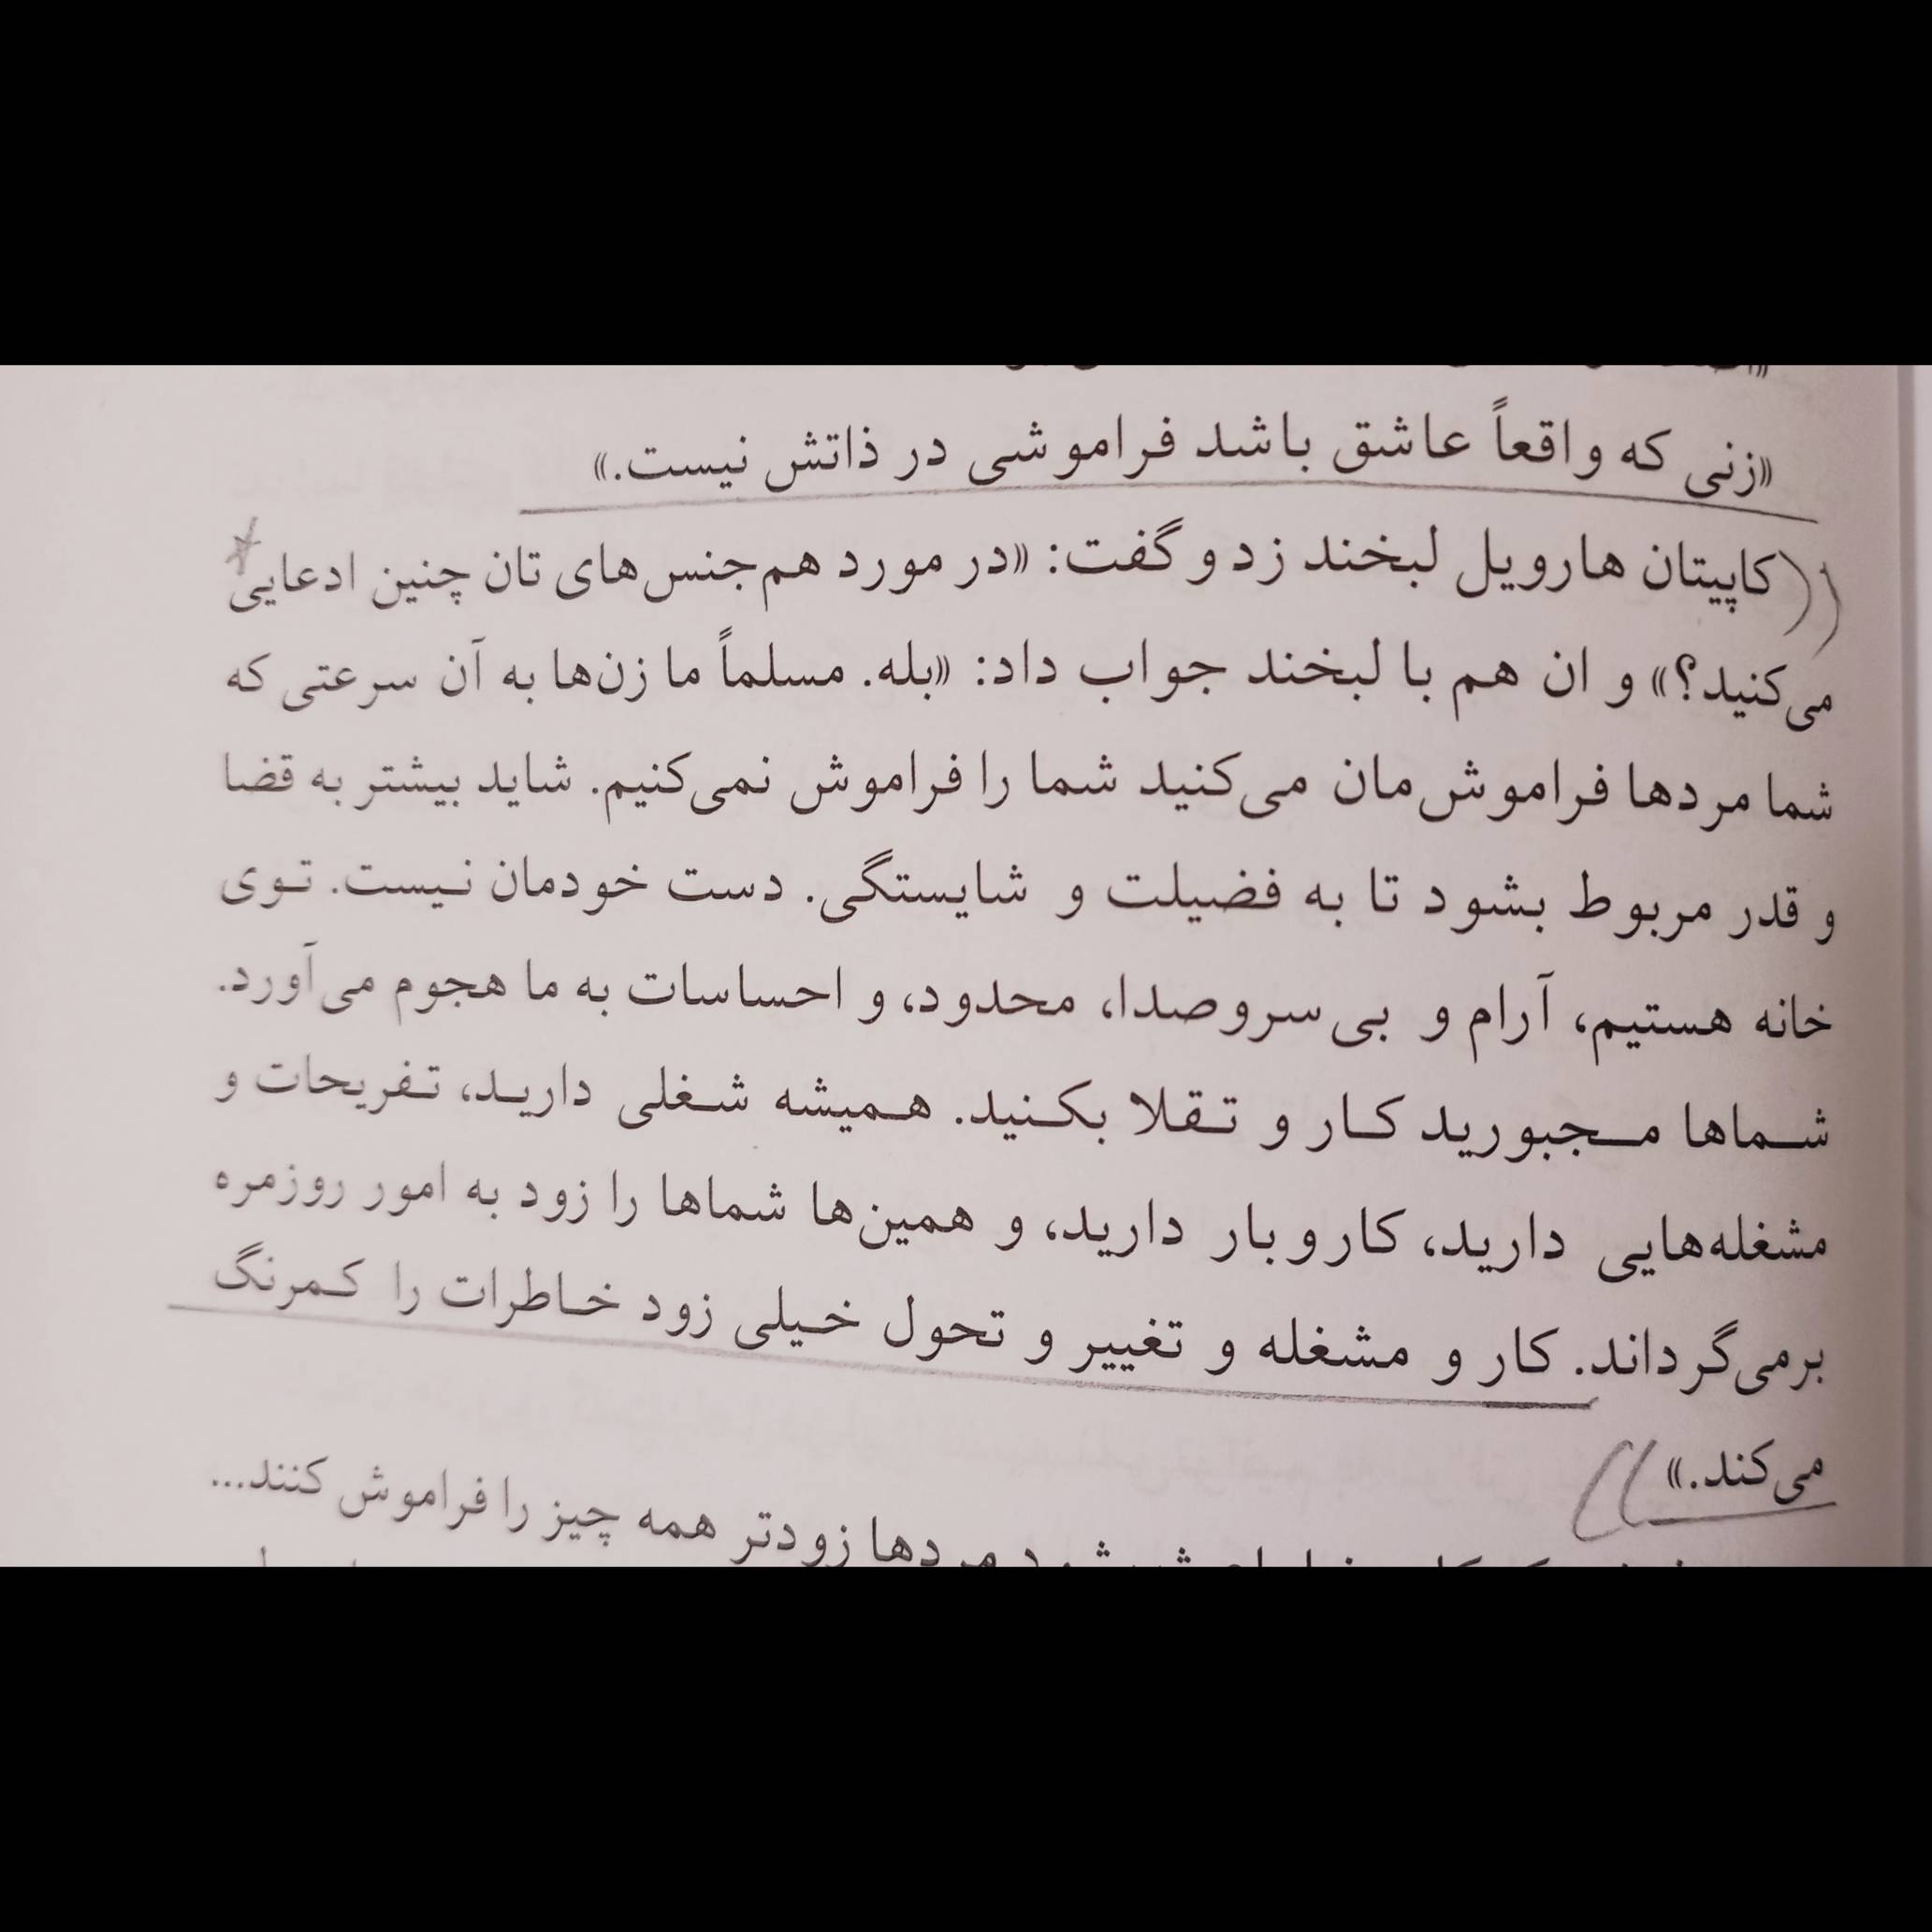 «زنی که واقعاً عاشق باشد فراموشی در ذاتش نیست.»
کاپیتان هارویل لبخند زد و گفت: «در مورد هم‌جنس‌های تان چنین ادعایی
می‌کنید؟» و ان هم با لبخند جواب داد: «بله. مسلماً ما زن‌ها به آن سرعتی که
شما مردها فراموش‌مان می‌کنید شما را فراموش نمی‌کنیم. شاید بیشتر به قضا
و قدر مربوط بشود تا به فضیلت و شایستگی. دست خودمان نیست. توی
خانه هستیم، آرام و بی‌سروصدا، محدود، و احساسات به ما هجوم می‌آورد.
شماها مجبورید کار و تقلا بکنید. همیشه شغلی دارید، تفریحات و
مشغله‌هایی دارید، کاروبار دارید، و همین‌ها شماها را زود به امور روزمره
برمی‌گرداند. کار و مشغله و تغییر و تحول خیلی زود خاطرات را کمرنگ
می‌کند.»
مردها زودتر همه چیز را فراموش کنند...